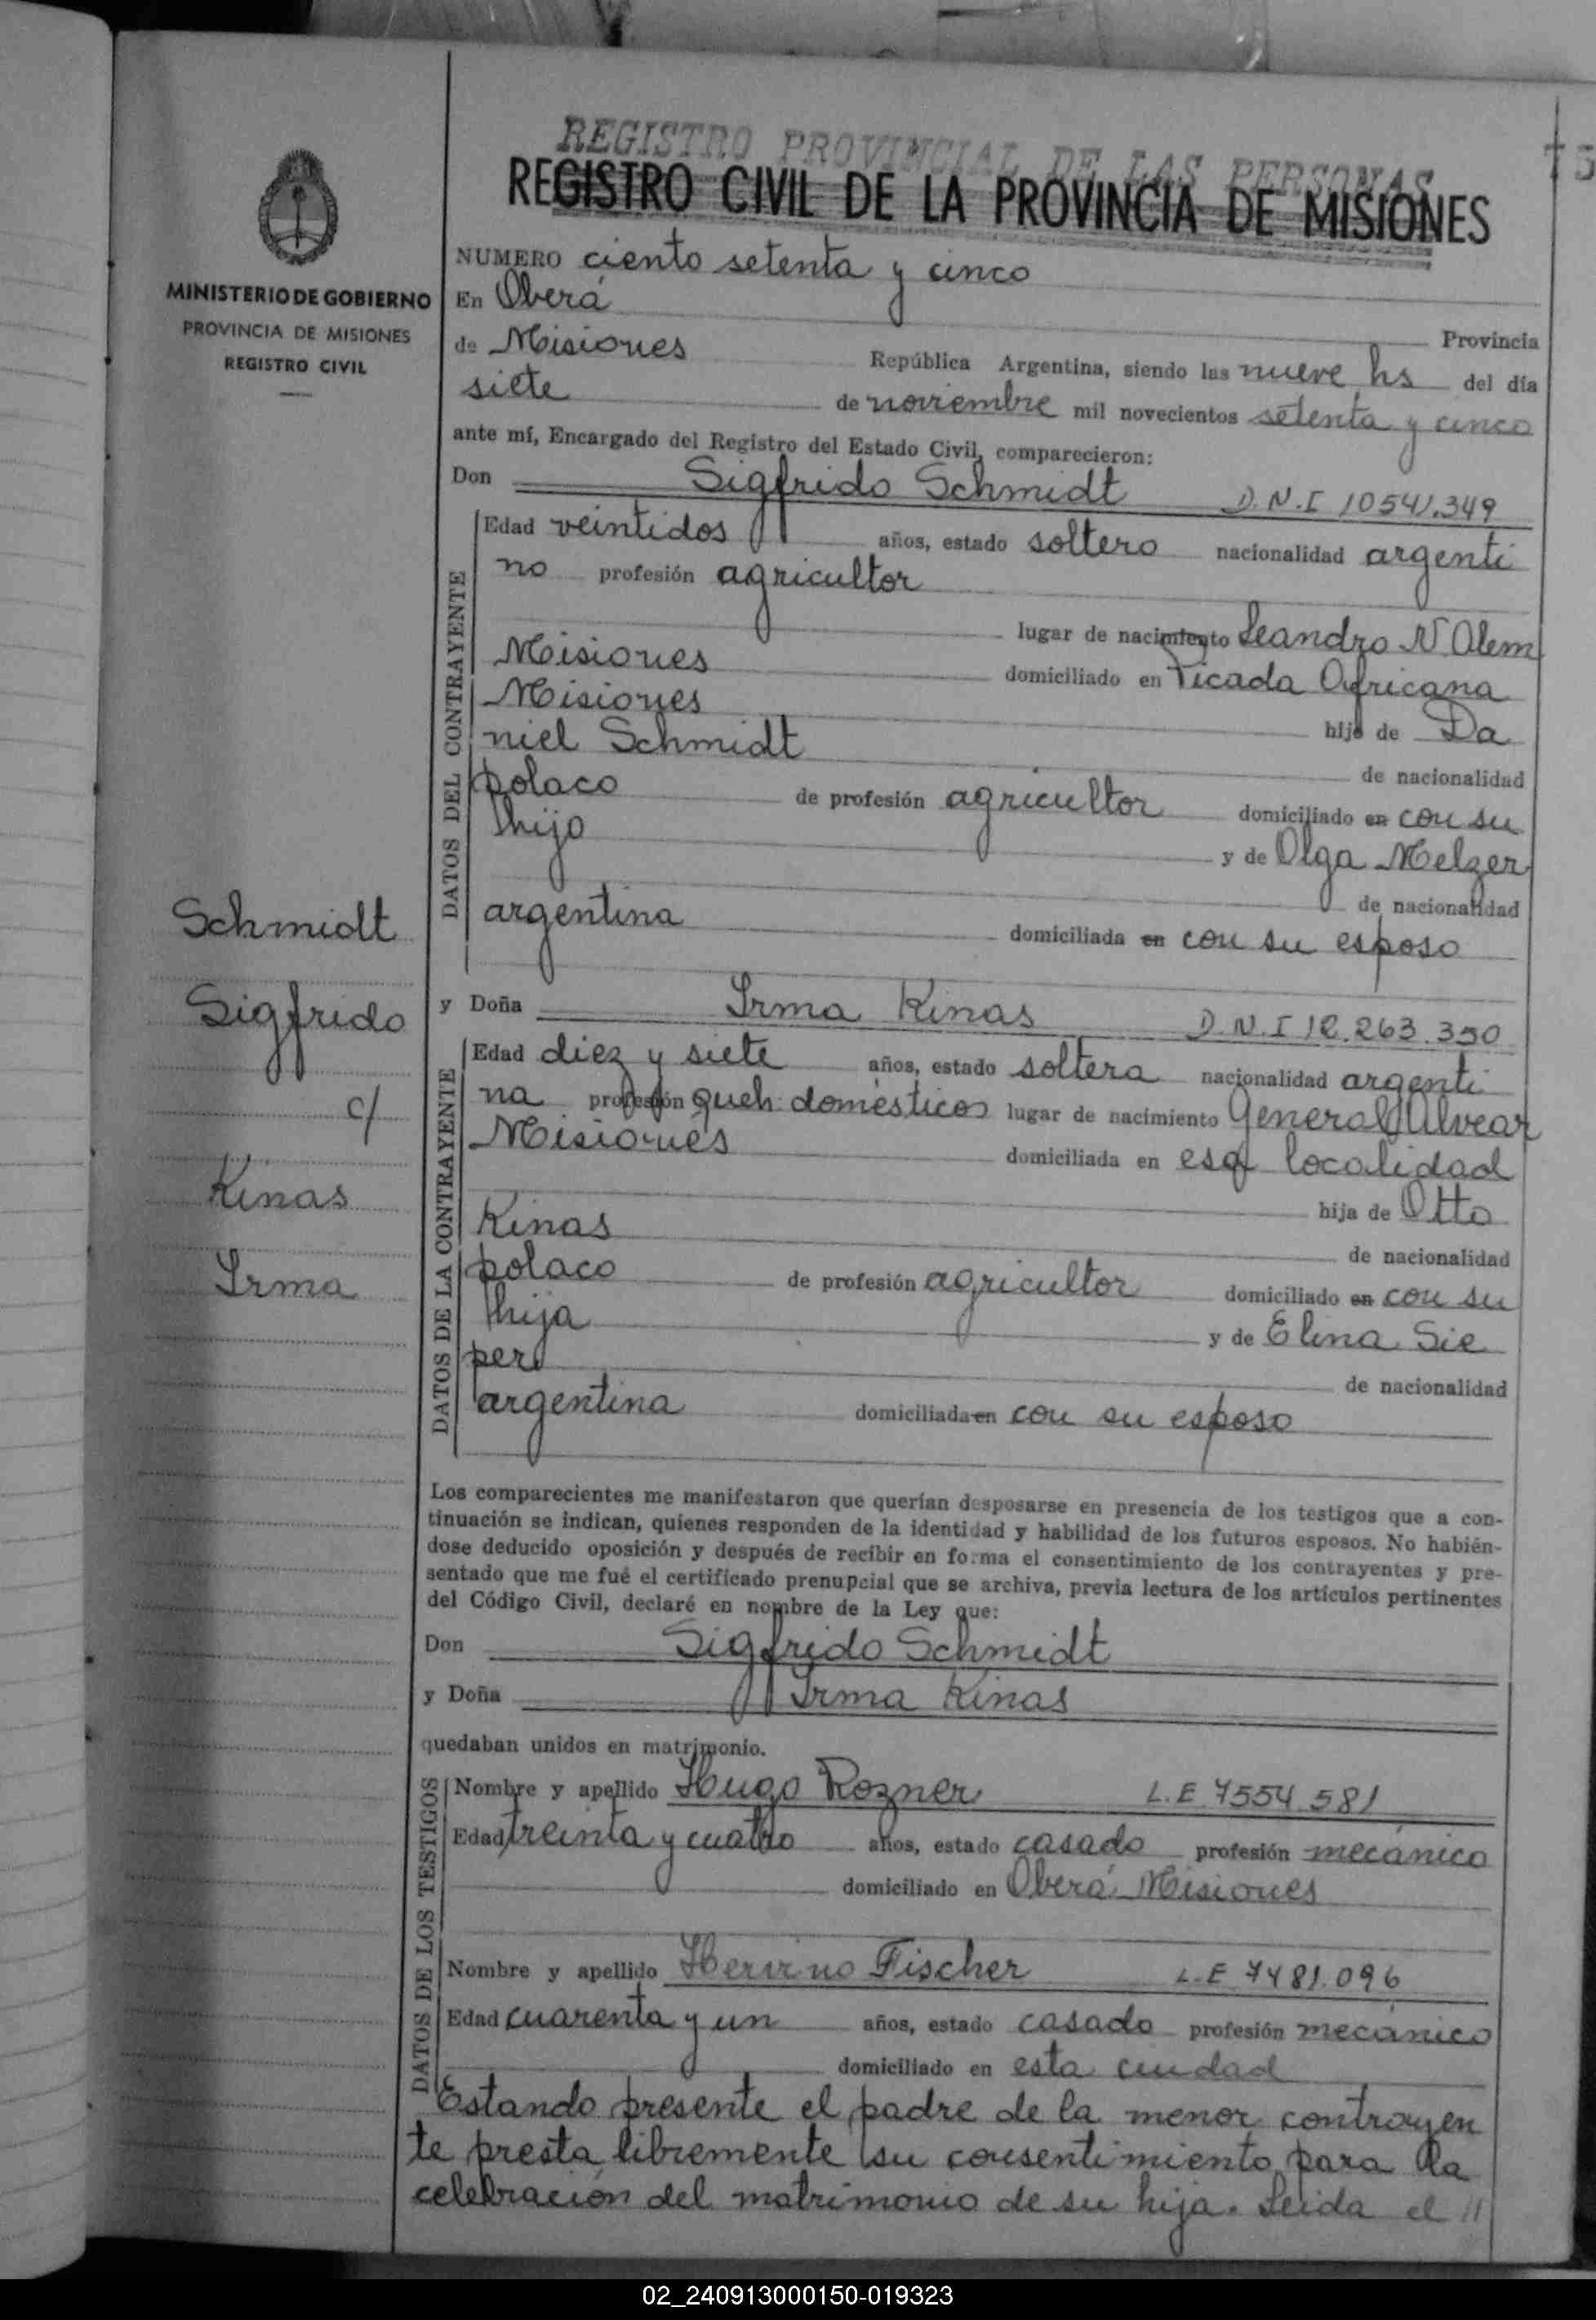 REGISTRO PROVINCIAL DE LAS PERSONAS
REGISTRO CIVIL DE LA PROVINCIA DE MISIONES
MINISTERIO DE GOBIERNO
PROVINCIA DE MISIONES
REGISTRO CIVIL
Schmidt
Sigfrido
c/
Kinas
Irma
NUMERO ciento setenta y cinco
En Oberá Provincia
de Misiones República Argentina, siendo las nueve hs del día
siete de noviembre mil novecientos setenta y cinco
ante mí, Encargado del Registro del Estado Civil, comparecieron:
Don Sigfrido Schmidt D.N.I 10541.349
DATOS DEL CONTRAYENTE
Edad veintidos años, estado soltero nacionalidad argenti
no profesión agricultor
lugar de nacimiento Leandro N Alem
Misiones domiciliado en Picada Africana
Misiones hijo de Da
niel Schmidt de nacionalidad
polaco de profesión agricultor domiciliado en con su
hijo y de Olga Melzer
de nacionalidad
argentina domiciliada en con su esposo
y Doña Irma Kinas D.N.I 12.263.350
DATOS DE LA CONTRAYENTE
Edad diez y siete años, estado soltera nacionalidad argenti
na profesión queh. domésticos lugar de nacimiento General Alvear
Misiones domiciliada en esa localidad
hija de Otto
Kinas de nacionalidad
polaco de profesión agricultor domiciliado en con su
hija y de Elina Sie
per de nacionalidad
argentina domiciliada en con su esposo
Los comparecientes me manifestaron que querían desposarse en presencia de los testigos que a con-
tinuación se indican, quienes responden de la identidad y habilidad de los futuros esposos. No habién-
dose deducido oposición y después de recibir en forma el consentimiento de los contrayentes y pre-
sentado que me fué el certificado prenupcial que se archiva, previa lectura de los artículos pertinentes
del Código Civil, declaré en nombre de la Ley que:
Don Sigfrido Schmidt
y Doña Irma Kinas
quedaban unidos en matrimonio.
DATOS DE LOS TESTIGOS
Nombre y apellido Hugo Rozner L.E 7554 581
Edad treinta y cuatro años, estado casado profesión mecánico
domiciliado en Oberá Misiones
Nombre y apellido Fischer L.E 7481.096
Edad cuarenta y un años, estado casado profesión mecánico
domiciliado en esta ciudad
Estando presente el padre de la menor contrayen
te presta libremente su consentimiento para la
celebración del matrimonio de su hija. Leida el //
02_240913000150-019323